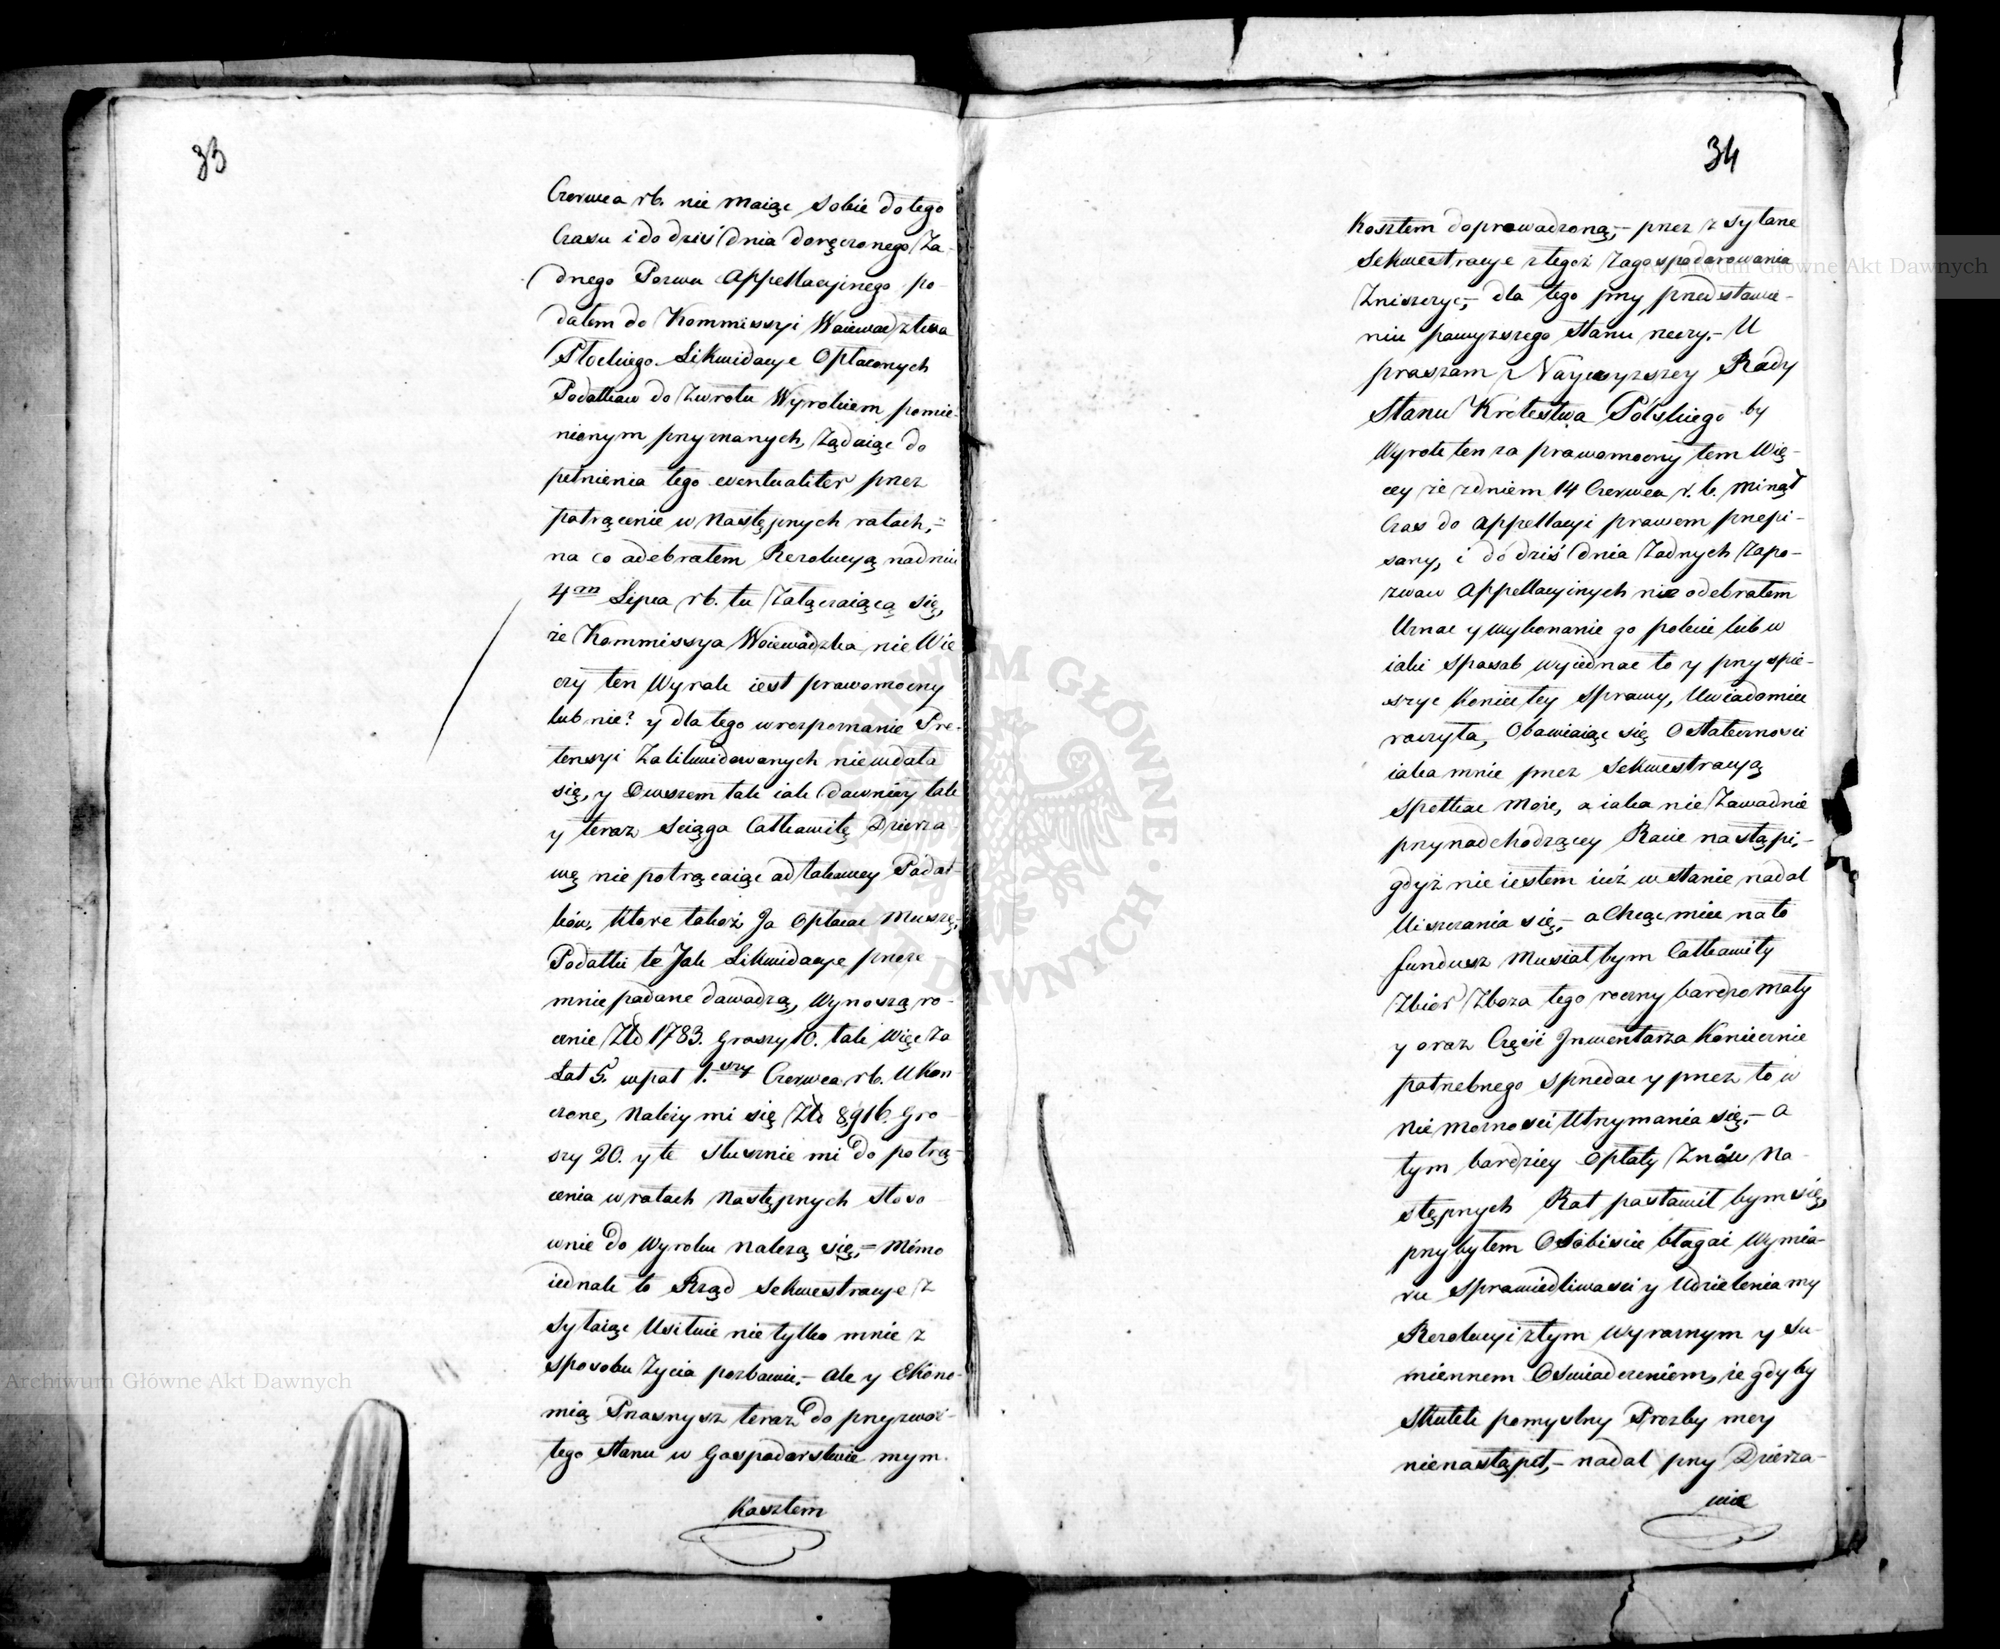 33
Czerwca rb. nie maiąc sobie do tego
Czasu i do dziś dnia doręczonego Ża-
dnego Pozwu Appellacyjnego po-
dałem do Kommissyi Woiewodztwa
Płockiego Likwidacye Opłaconych
Podatkow do Zwrotu Wyrokiem pomie-
nionym przyznanych, Żądaiąc do
pełnienia tego eventualiter przez
potrącenie w Następnych ratach,=
na co odebrałem Rezolucyą nadniu
4m Lipca rb. tu Załączaiącą się,
że Kommissya Woiewódzka nie Wie
czy ten Wyrok iest prawomocny
lub nie? y dla tego w rozpoznanie Pre-
tensyi Zalikwidowanych nie wdała
się, y Owszem tak iak dawniey tak
y teraz ściąga Całkowitę Dzierża-
wę nie potrącaiąc od takowey Podat-
ków, ktore takoż Ja Opłacać Muszę,
Podatki te Jak Likwidacye przeze
mnie podane dowodzą, wynoszą ro-
cznie Złł 1783. Groszy 10. tak Więc Za
Lat 5. w pał 1.szy Czerwca rb. Ukoń
czone, Należy mi się Złł 8,916. Gro-
szy 20. y te słusznie mi do potrą-
cenia w ratach Następnych stoso-
wnie do Wyroku Należą się,= Mimo
iednak to Rząd Sekwestracye Z
syłaiąc Usiłuie nie tylko mnie z
sposobu Życia pozbawić,- Ale y Ekono-
mią Przasnysz teraz do przyzwoi-
tego Stanu w Gospodarstwie mym.
Kosztem
34
Kosztem doprowadzoną,- przez zsyłane
Sekwestracye z tegoż Zagospodarowania
Zniszczyć,- dla tego przy przedstawie-
niu powyższego Stanu rzeczy,- U
praszam Naywyższey Rady
Stanu Królestwa Polskiego by
Wyrok ten za prawomocny tem Wię-
cey że z dniem 14 Czerwca r. b. Minął
Czas do Appellacyi prawem przepi-
sany, i do dziś dnia Żadnych Zapo-
zwow Appellacyinych nie odebrałem
Uznać y wykonanie go polecić lub w
iaki sposob wyiednać to y przyspie-
szyć Koniec tey Sprawy, Uwiadomić
raczyła, Obawiaiąc się Ostateczności
iaka mnie przez Sekwestracyą
Spotkać Może, a iaka nie Zawodnie
przy nadchodzącey Racie nastąpi,-
gdyż nie iestem iuż w stanie nadal
Uiszczania się,- a Chcąc mieć na to
fundusz Musiał bym Całkowity
Zbiór Zboża tego roczny bardzo Mały
y oraz Część Jnwentarza Koniecznie
potrzebnego Sprzedać y przez to w
Nie możności Utrzymania się,- a
tym bardziey Opłaty Znów Na-
stępnych Rat postawił bym się,
przybyłem Osobiście błagać Wymia-
ru Sprawiedliwości y Udzielenia my
Rezolucyi z tym Wyraznym y Su-
miennem Oświadczeniem, że gdyby
Skutek pomyslny Prozby mey
nie nastąpił,- nadal przy Dzierża-
wie
Archiwum Główne Akt Dawnych
Archiwum Główne Akt Dawnych
ARCHIWUM GŁÓWNE · AKT DAWNYCH ·